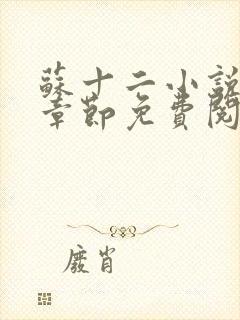 蘇十二小說
章節免費閱
廢肖